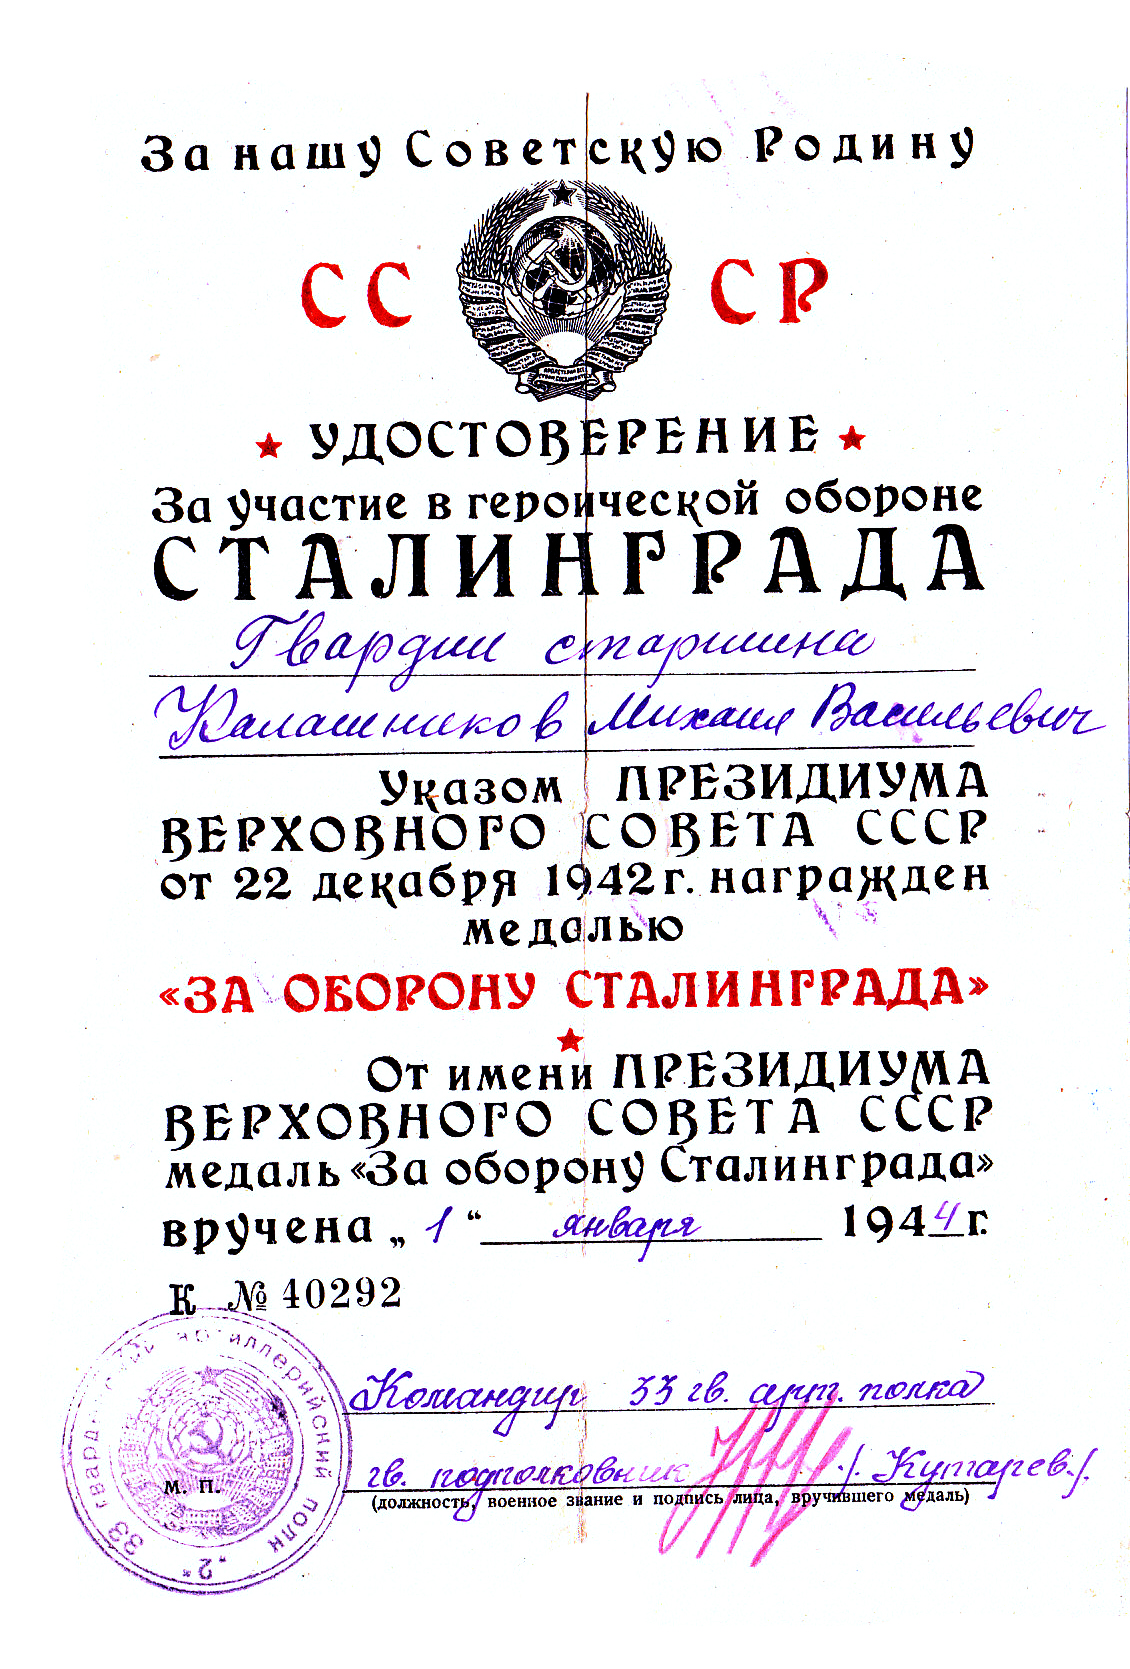 За нашу Советскую Родину
СС СР
УДОСТОВЕРЕНИЕ
За участие в героической обороне
СТАЛИНГРАДА
Гвардии старшина
Калашников Михаил Васильевич
Указом ПРЕЗИДИУМА
ВЕРХОВНОГО СОВЕТА СССР
от 22 декабря 1942 г. награжден
медалью
«ЗА ОБОРОНУ СТАЛИНГРАДА»
От имени ПРЕЗИДИУМА
ВЕРХОВНОГО СОВЕТА СССР
медаль «За оборону Сталинграда»
вручена „1“ января 1944 г.
К № 40292
Командир 33 гв. арт. полка
гв. подполковник /Кутарев./
(должность, военное звание и подпись лица, вручившего медаль)
М. П.
33 гвард артиллерийский полк "2"